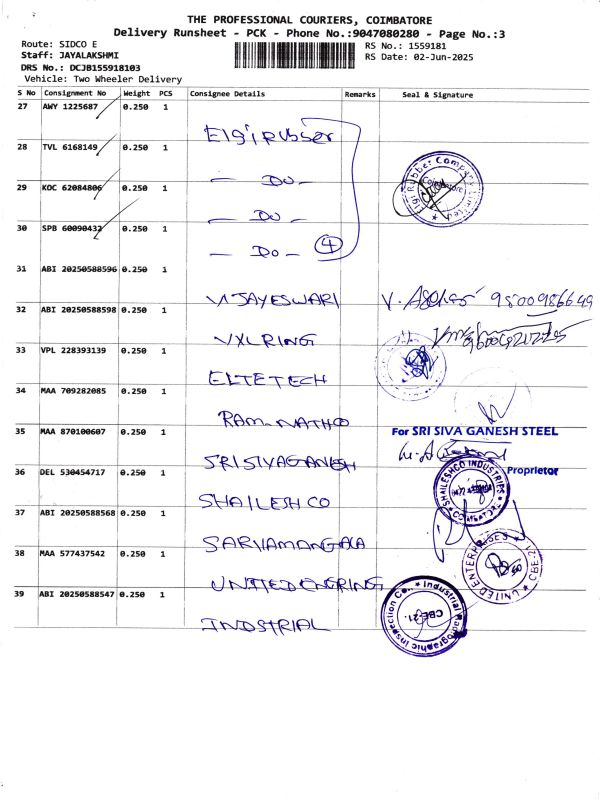 THE PROFESSIONAL COURIERS, COIMBATORE
Delivery Runsheet - PCK - Phone No.:9047080280 - Page No.:3
Route: SIDCO E
RS No.: 1559181
Staff: JAYALAKSHMI
RS Date: 02-Jun-2025
DRS No.: DCJB155918103
Vehicle: Two Wheeler Delivery
S No Consignment No Weight PCS Consignee Details Remarks Seal & Signature
27 AWY 1225687 0.250 1
Elgi rubber
28 TVL 6168149 0.250 1
— Do —
29 KOC 62084806 0.250 1
— Do —
30 SPB 60090432 0.250 1
— Do — 4
Elgi Rubber Company Limited
Coimbatore
31 ABI 20250588596 0.250 1
VIJAYESWARI
9500986649
32 ABI 20250588598 0.250 1
VXL RING
33 VPL 228393139 0.250 1
ELTETECH
34 MAA 709282085 0.250 1
35 MAA 870100607 0.250 1
For SRI SIVA GANESH STEEL
Proprietor
SRISIVAGANESH
36 DEL 530454717 0.250 1
SHAILESHCO INDUSTRIES
COIMBATORE
SHAILESH CO
37 ABI 20250588568 0.250 1
SARVAMANGALA
38 MAA 577437542 0.250 1
UNITED ENTERPRISES
CBE-21
UNITEDENGRING
39 ABI 20250588547 0.250 1
Industrial Radiographic Inspection Co.
CBE-21.
INDSTRIAL